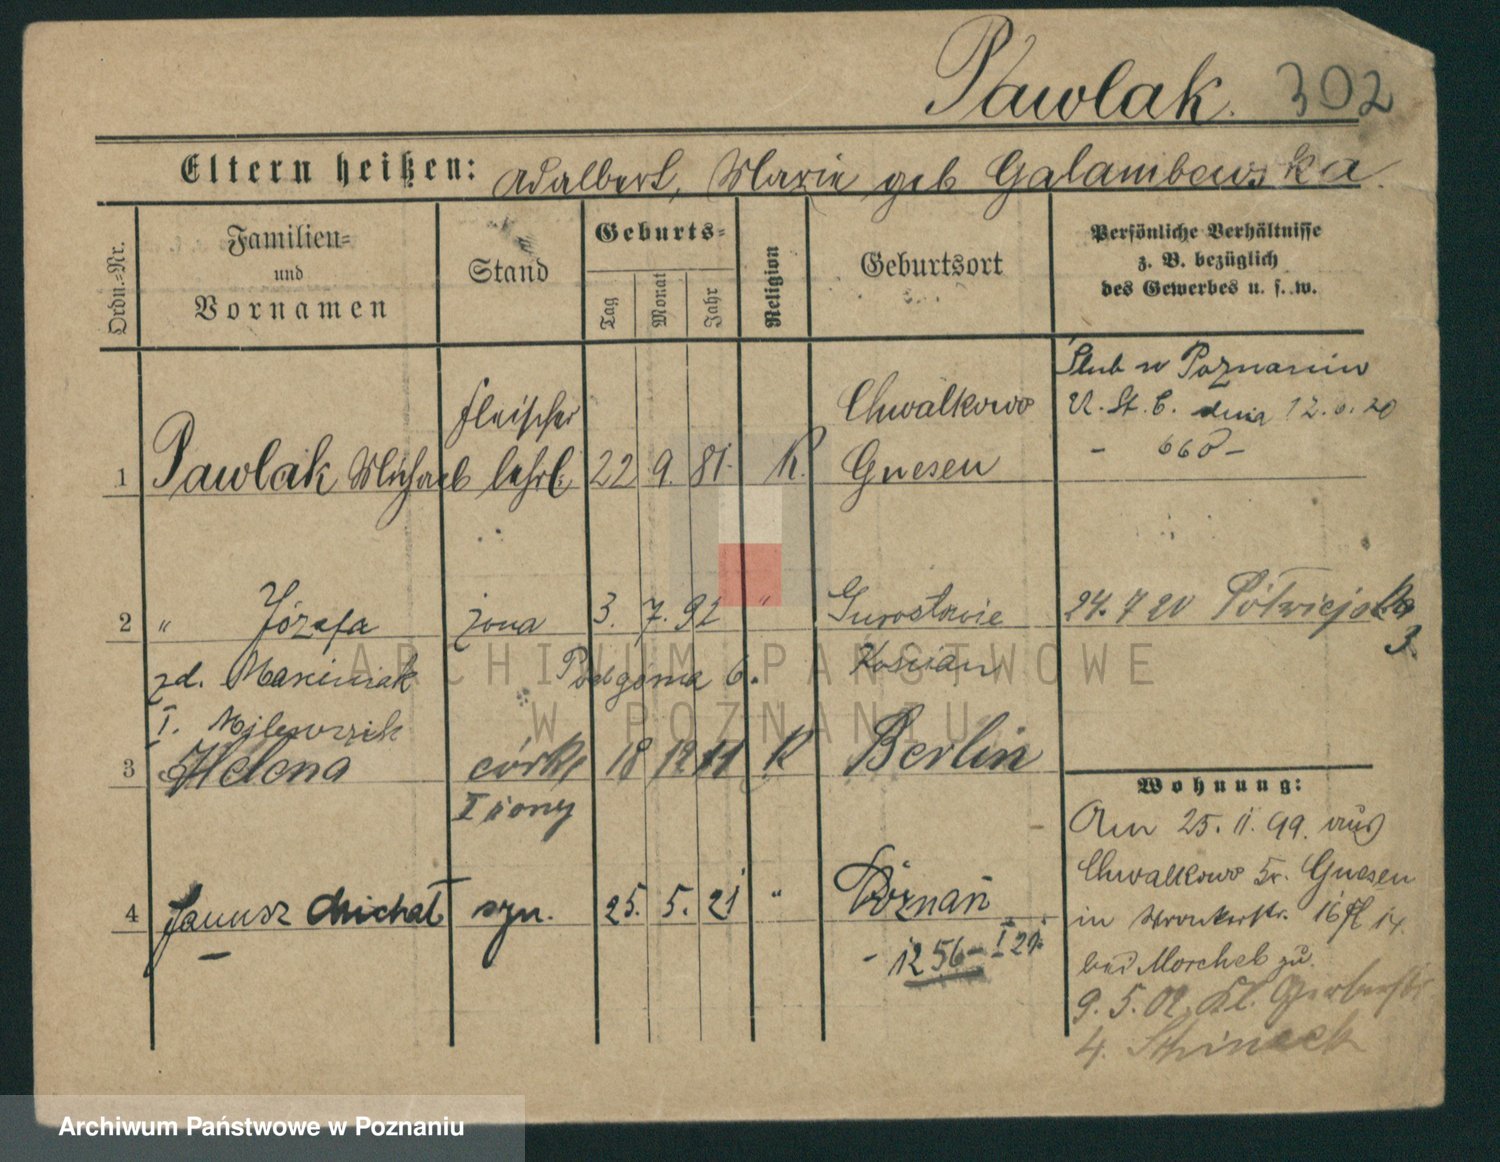 Pawlak. 302
Eltern heißen: Adalbert, Marie geb Galambewska.
Ordn.-Nr.
Familien-
und
Vornamen
Stand
Geburts-
Tag
Monat
Jahr
Religion
Geburtsort
Persönliche Verhältnisse
z. B. bezüglich
des Gewerbes u. s. w.
Ślub w Poznaniu
U. St. C. dnia 20
- 668 -
1 Pawlak Michael
Fleischer
lehrl. 22 9. 81. K.
Chwalkowo
Gnesen
2 " Józefa żona 3. 7. 92 "
Kościan
24. 7 20 Półwiejska
3.
zd. Marciniak Podgórna 6.
I.
3 Helena córka 18 12 11 K Berlin
I żony
4 Janusz Michał syn. 25. 5. 21 " Poznań
- 1256 - I 21
Wohnung:
Am 25. 11. 99. aus
Chwalkowo Kr. Gnesen
in Wronkerstr. 16
bei Morchel zu.
9. 5. 02. Kl. Gerberstr
4.
ARCHIWUM PAŃSTWOWE
W POZNANIU
Archiwum Państwowe w Poznaniu